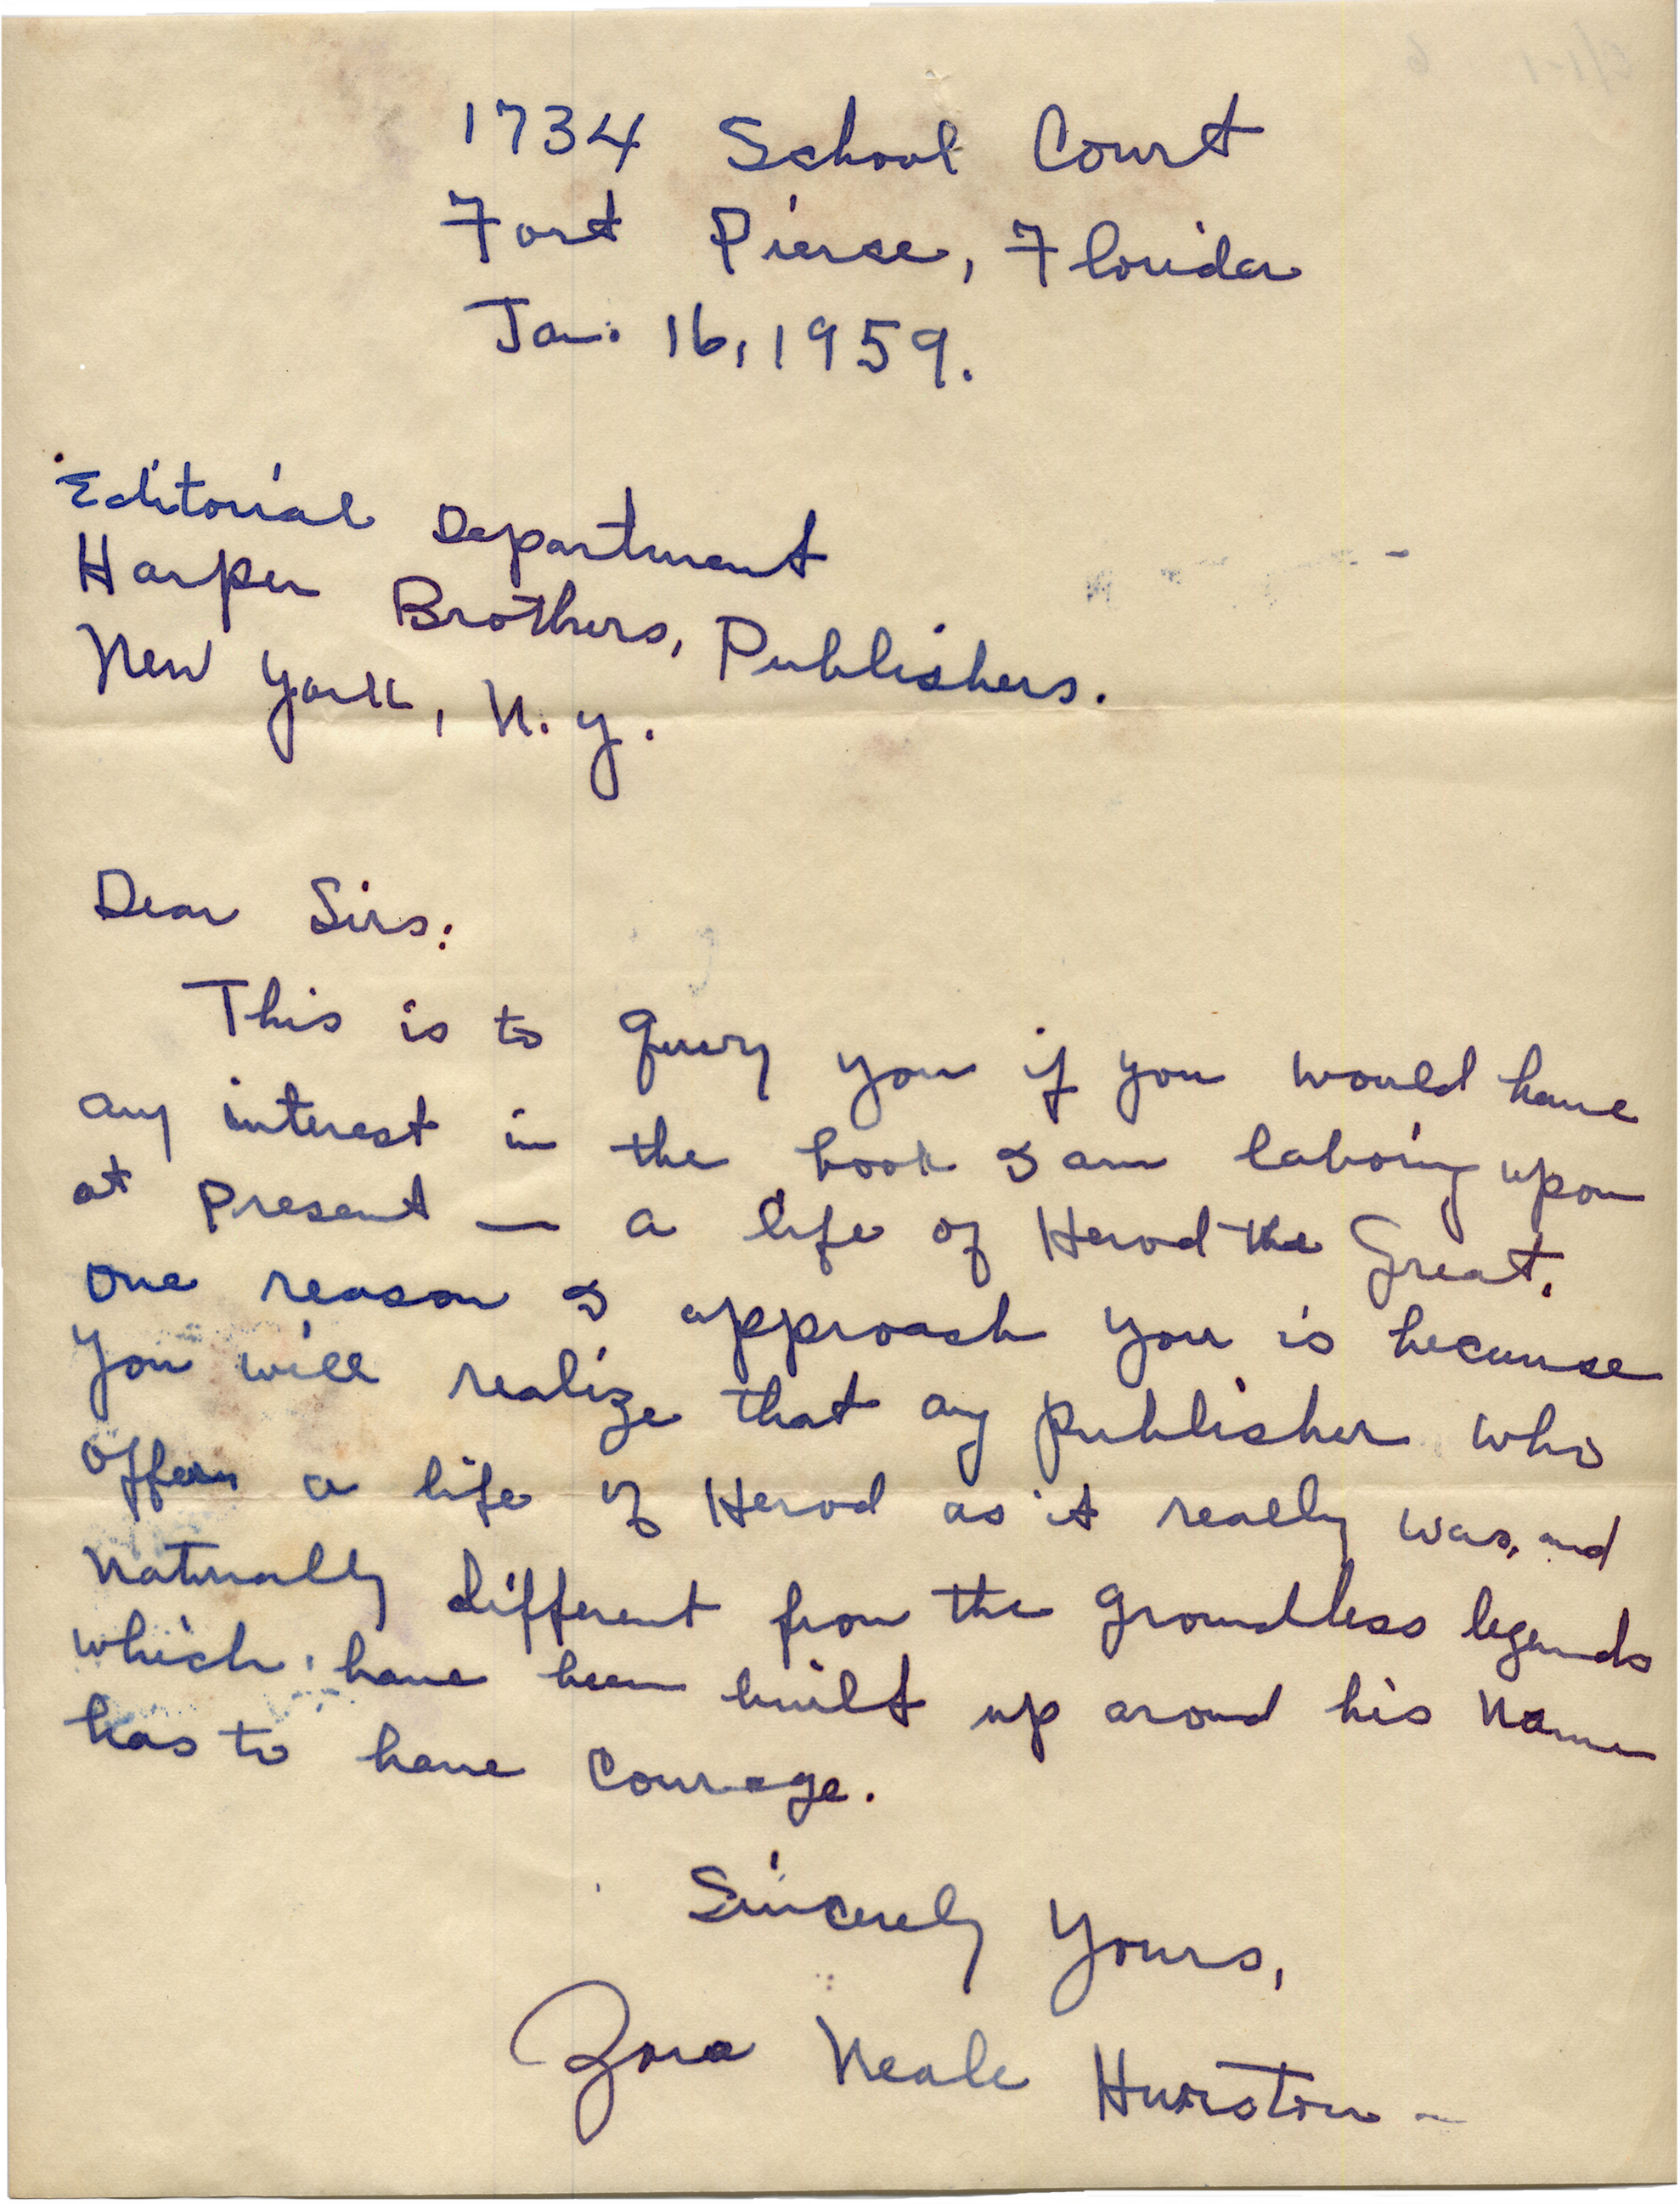 1734 School Court
Fort Pierce, Florida
Jan. 16, 1959.
Editorial Department
Harper Brothers, Publishers.
New York, N. Y.
Dear Sirs:
This is to query you if you would have
any interest in the book I am laboring upon
at present — a life of Herod the Great.
One reason I approach you is because
you will realize that any publisher who
offers a life of Herod as it really was, and
naturally different from the groundless legends
which have been built up around his name
has to have courage.
Sincerely Yours,
Zora Neale Hurston —